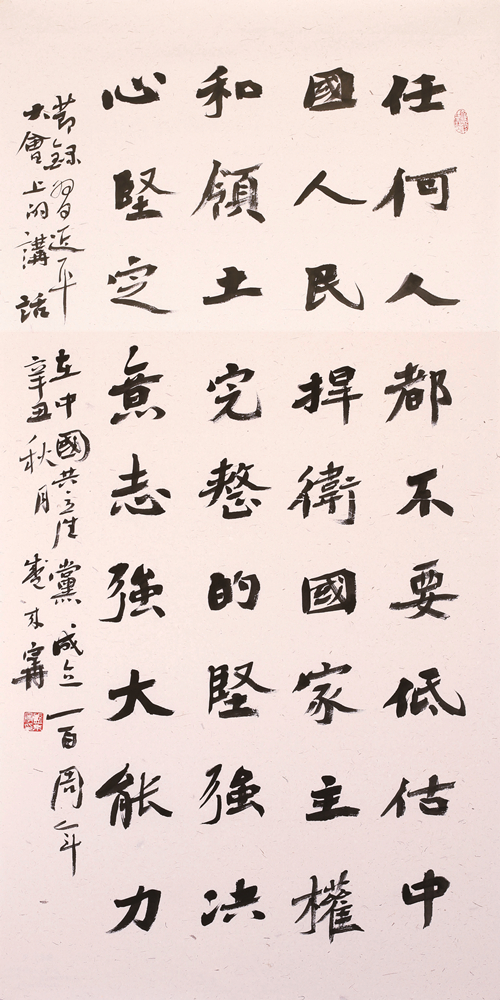 任何人都不要低估中
國人民捍衛國家主權
和領土完整的堅強决
心堅定意志強大能力
節録習近平在中國共產黨成立一百周年
大會上的講話辛丑秋月